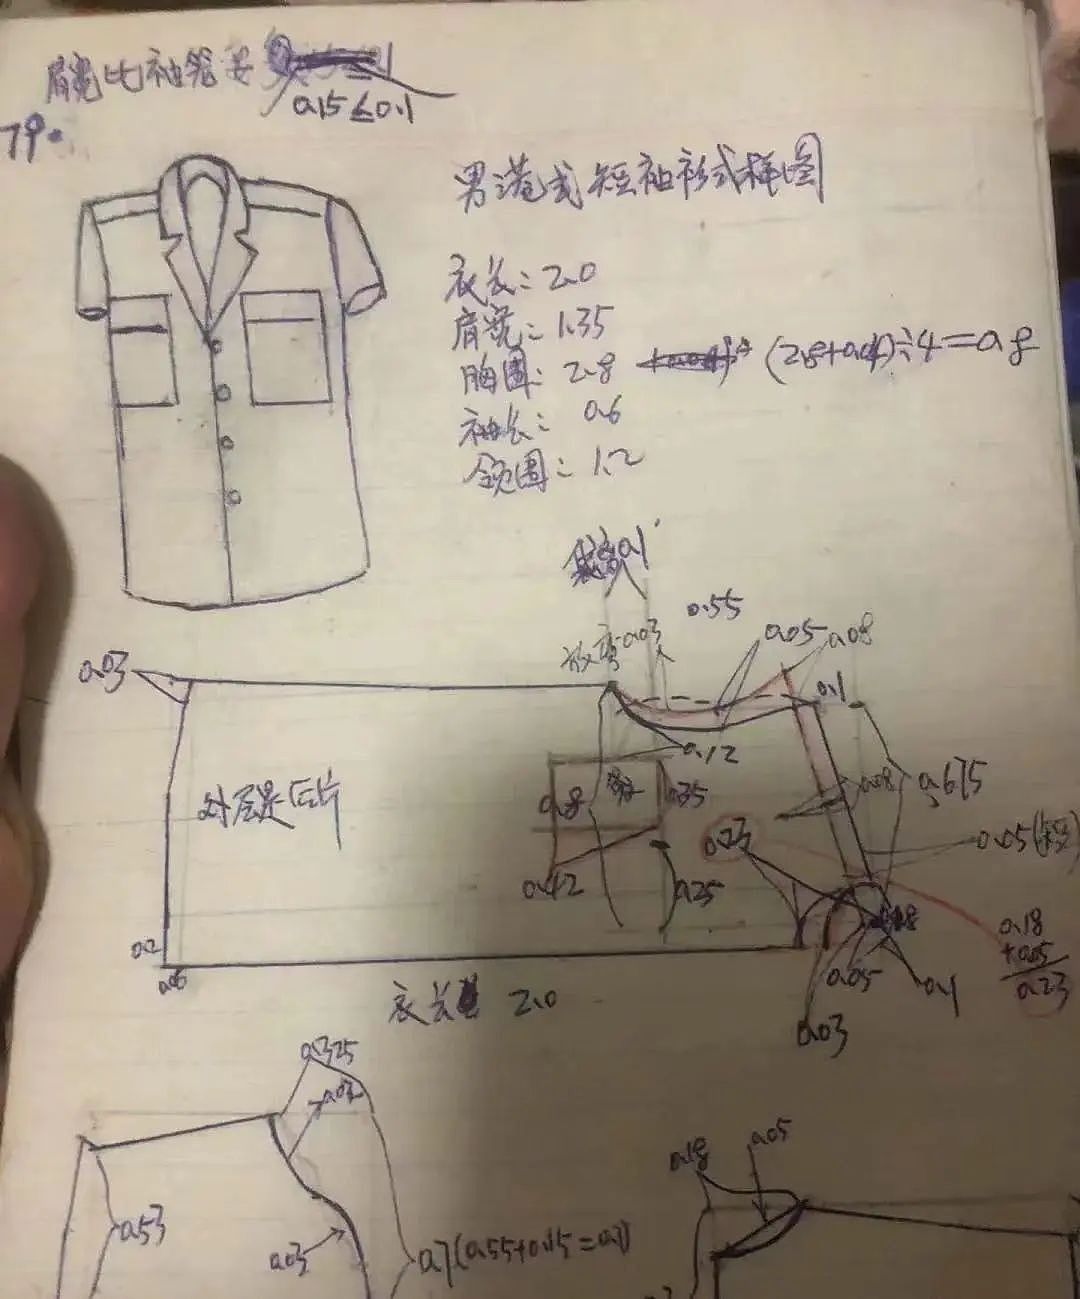 肩宽比袖笼
0.15≤0.1
79.
男港式短袖衫式样图
衣长：2.0
肩宽：1.35
胸围：2.8
(2.8+0.4)÷4=0.8
袖长：0.6
领围：1.2
0.1
0.55
放高0.03
0.05
0.08
0.03
0.1
0.12
0.08
0.675
0.8
0.35
0.05
对层是后片
0.23
0.42
0.25
0.18
+0.05
0.23
0.2
0.05
0.1
衣长 2.0
0.03
0.325
0.18
0.05
0.53
0.03
0.7(0.55+0.15=0.7)